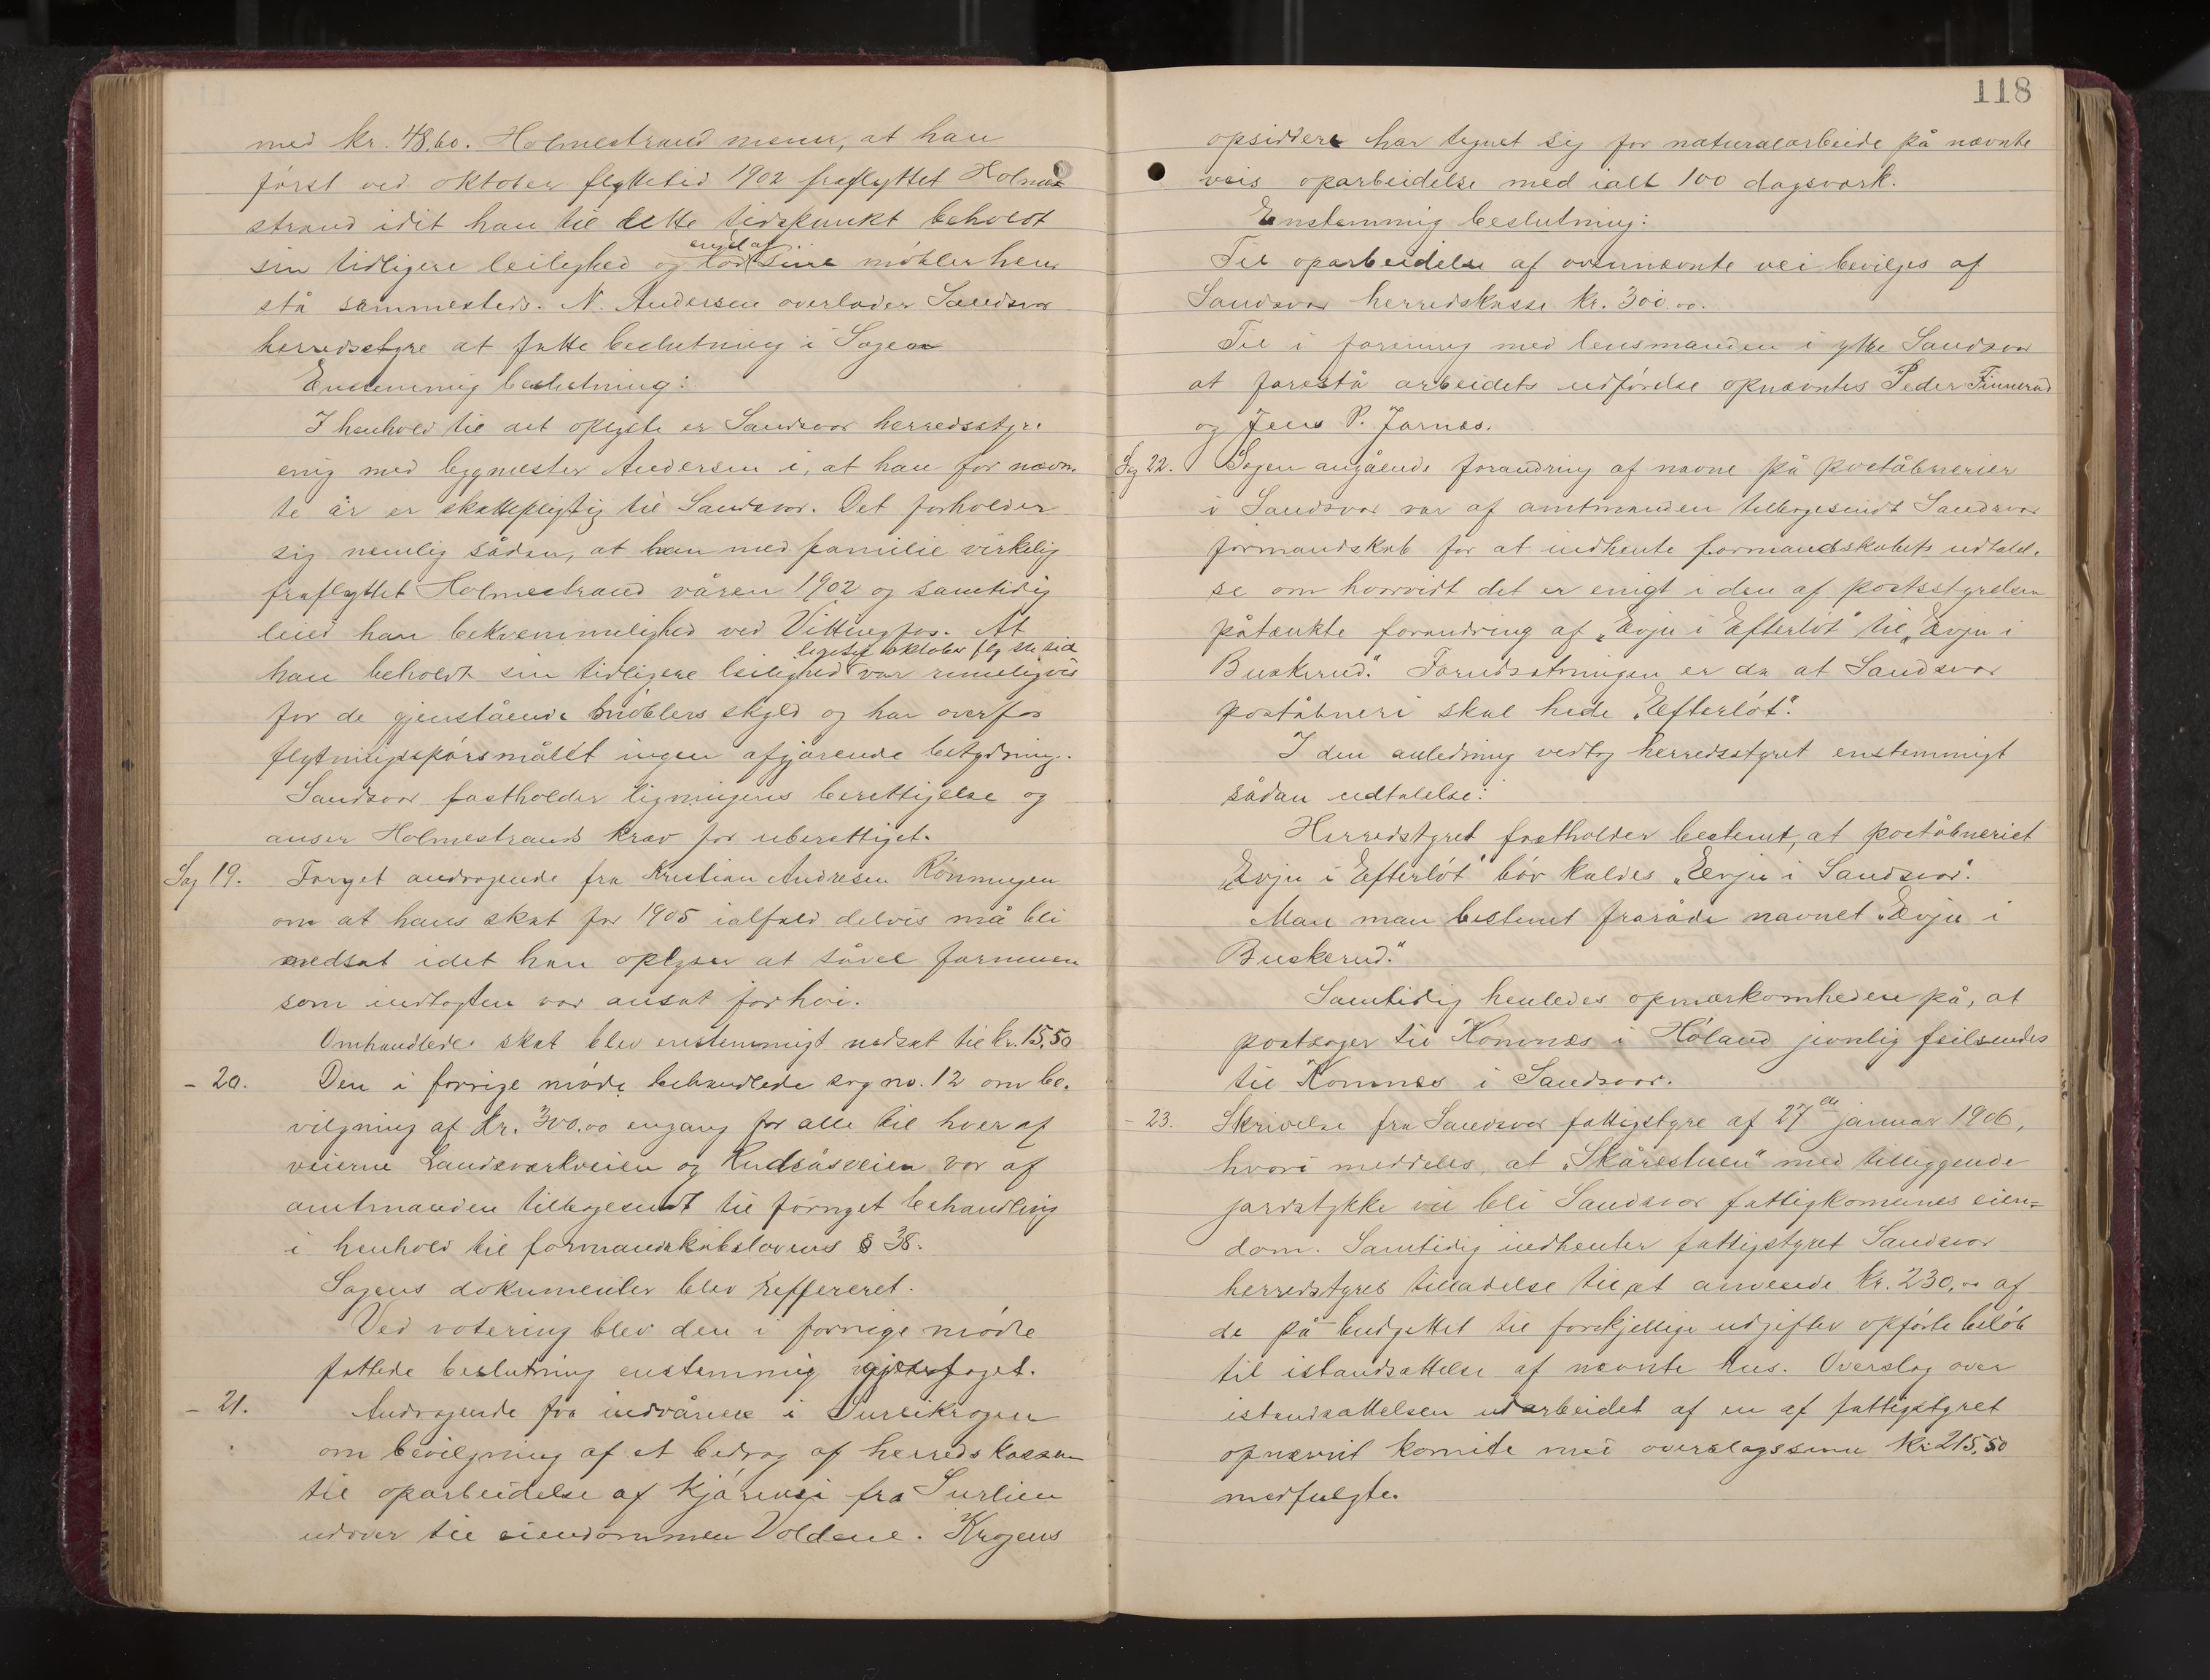 med kr. 48,60. Holmestrand mener, at han
först ved oktober flyttetid 1902 fraflyttet Holme
strand idet han til dette tidspunkt beholdt
sin tidligere leilighed og lod endel af sine möbler hen
stå sammesteds. N. Andersen overlader Sandsvær
herredsstyre at fatte beslutning i Sagen
Enstemmig beslutning:
I henhold til det oplyste er Sandsvær herredsstyre
enig med bygmester Andersen i, at han for nævn
te år er skattepligtig til Sandsvær. Det forholder
sig nemlig sådan, at han med familie virkelig
fraflyttet Holmestrand våren 1902 og samtidig
leied han bekvemmelighed ved Vittingfos. At
han beholdt sin tidligere leilighed ligetil oktober flyttetid var rimeligvis
for de gjenstående möblers skyld og har overfor
flytningsspörsmålet ingen afgjørende betydning.
Sandsvær fastholder ligningens berettigelse og
anser Holmestrands krav for uberettiget.
Sag 19. Fornyet andragende fra Kristian Andresen Rönningen
om at hans skat for 1905 ialfald delvis må bli
nedsat idet han oplyser at såvel formuen
som indtægten var ansat for höi.
Omhandlede skat blev enstemmigt nedsat til kr. 15,50
- 20. Den i forrige möde behandlede sag no. 12 om be.
vilgning af kr. 300.00 engang for alle til hver af
veierne Landsværkveien og Rudsåsveien var af
amtmanden tilbagesendt til fornyet behandling
i henhold til formandskabslovens § 38.
Sagens dokumenter blev reffereret.
Ved votering blev den i forrige möde
fattede beslutning enstemmig
- 21. Andragende fra indvånere i Surlikrogen
om bevilgning af et bedrag af herredskassen
til oparbeidelse af kjörevei fra Surlien
udover til eiendommen Voldene. Krogens
118
opsiddere har tegnet sig for naturalarbeide på nævnte
veis oparbeidelse med ialt 100 dagsværk.
Enstemmig beslutning:
Til oparbeidelse af ovennævnte vei bevilges af
Sandsvær herredskasse kr. 300.00.
Til i forening med lensmanden i ytre Sandsvær
at forestå arbeidets udförelse opnævntes Peder Finnerud
og Jens P. Jarnæs.
Sag 22. Sagen angående forandring af navne på poståbnerier
i Sandsvær var af amtmanden tilbagesendt Sandsvær
formandskab for at indhente formandskabets udtalel.
se om hvorvidt det er enigt i den af postsstyrelsen
påtænkte forandring af „Evju i Efterlöt" til „Evju i
Buskerud." Forudsætningen er da at Sandsvær
poståbneri skal hede „Efterlöt".
I den anledning vedtog herredsstyret enstemmigt
sådan udtalelse:
Herredstyret fastholder bestemt, at poståbneriet
„Evju i Efterlöt" bör kaldes „Evju i Sandsvær".
Man man bestemt fraråde navnet „Evju i
Buskerud."
Samtidig henledes opmærksomheden på, at
postsager til Komnæs i Höland jevnlig feilsendes
til Komnæs i Sandsvær.
- 23. Skrivelse fra Sandsvær fattigstyre af 27de januar 1906,
hvori meddeles, at „Skårestuen" med tilliggende
jordstykke vil bli Sandsvær fattigkomunes eien=
dom. Samtidig indhenter fattigstyret Sandsvær
herredstyres tilladelse til at anvende kr. 230,00 af
de på budgettet til forskjellige udgifter opförte belöb
til istandsættelse af nævnte hus. Overslag over
istandsættelsen udarbeidet af en af fattigstyret
opnævnt komite med overslagssum kr. 215,50
medfulgte.